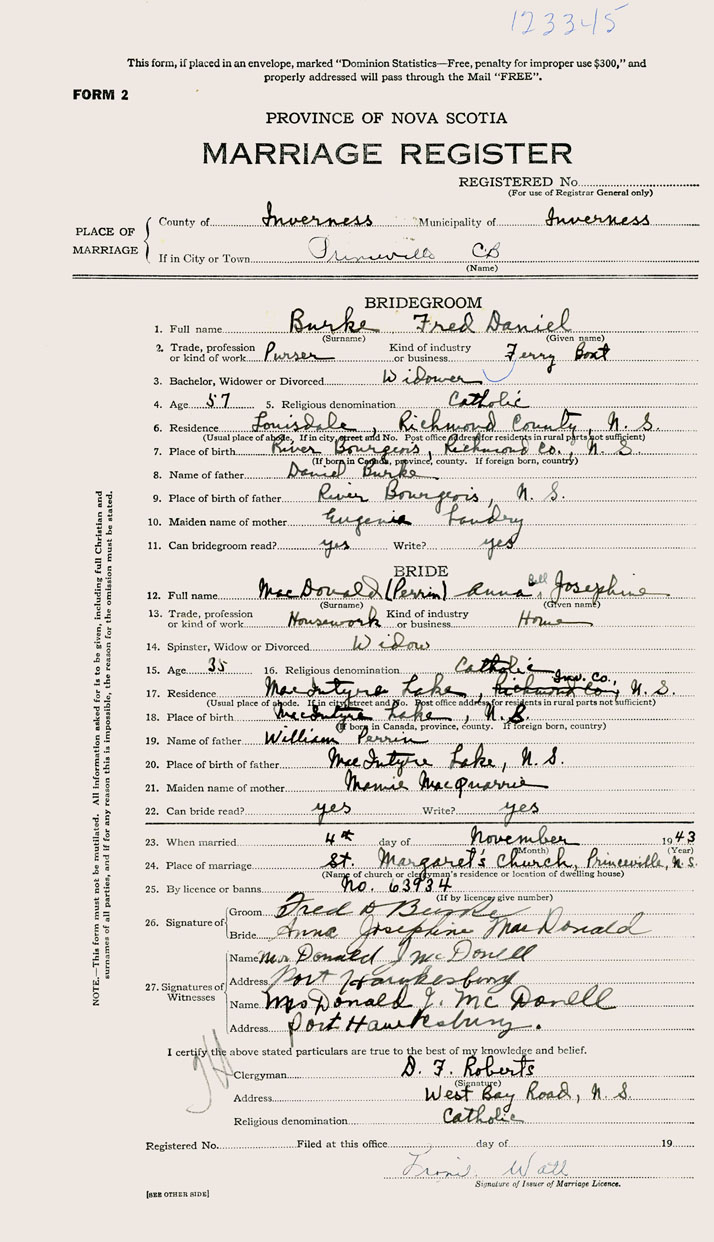 123345
This form, if placed in an envelope, marked "Dominion Statistics—Free, penalty for improper use $300," and
properly addressed will pass through the Mail "FREE".
FORM 2
PROVINCE OF NOVA SCOTIA
MARRIAGE REGISTER
REGISTERED No.
(For use of Registrar General only)
PLACE OF MARRIAGE
County of Inverness Municipality of Inverness
If in City or Town Princeville CB
(Name)
BRIDEGROOM
1. Full name Burke Fred Daniel
(Surname) (Given name)
2. Trade, profession or kind of work Purser Kind of industry or business Ferry Boat
3. Bachelor, Widower or Divorced Widower
4. Age 57 5. Religious denomination Catholic
6. Residence Louisdale, Richmond County, N. S.
(Usual place of abode. If in city, street and No. Post office address for residents in rural parts not sufficient)
7. Place of birth River Bourgeois, Richmond Co., N. S.
(If born in Canada, province, county. If foreign born, county)
8. Name of father Daniel Burke
9. Place of birth of father River Bourgeois, N. S.
10. Maiden name of mother Eugenia Landry
11. Can bridegroom read? yes Write? yes
BRIDE
12. Full name MacDonald (Perrin) Anna Bell Josephine
(Surname) (Given name)
13. Trade, profession or kind of work Housework Kind of industry or business Home
14. Spinster, Widow or Divorced Widow
15. Age 35 16. Religious denomination Catholic
17. Residence MacIntyre Lake, Richmond Co., Inv. Co., N. S.
(Usual place of abode. If in city, street and No. Post office address for residents in rural parts not sufficient)
18. Place of birth MacIntyre Lake, N. S.
(If born in Canada, province, county. If foreign born, country)
19. Name of father William Perrin
20. Place of birth of father MacIntyre Lake, N. S.
21. Maiden name of mother Mamie MacQuarrie
22. Can bride read? yes Write? yes
23. When married 4th day of November 1943
(Month) (Year)
24. Place of marriage St. Margaret's Church, Princeville, N. S.
(Name of church or clergyman's residence or location of dwelling house)
25. By licence or banns No. 63934
(If by licence, give number)
26. Signature of
Groom Fred D Burke
Bride Anna Josephine MacDonald
27. Signatures of Witnesses
Name Mr Donald J McDonell
Address Port Hawkesbury
Name Mrs Donald J. McDonell
Address Port Hawkesbury.
I certify the above stated particulars are true to the best of my knowledge and belief.
Clergyman D. F. Roberts
(Signature)
Address West Bay Road, N. S.
Religious denomination Catholic
Registered No. Filed at this office day of 19
Watt
Signature of Issuer of Marriage Licence.
[SEE OTHER SIDE]
NOTE.—This form must not be mutilated. All information asked for is to be given, including full Christian and
surnames of all parties, and if for any reason this is impossible, the reason for the omission must be stated.